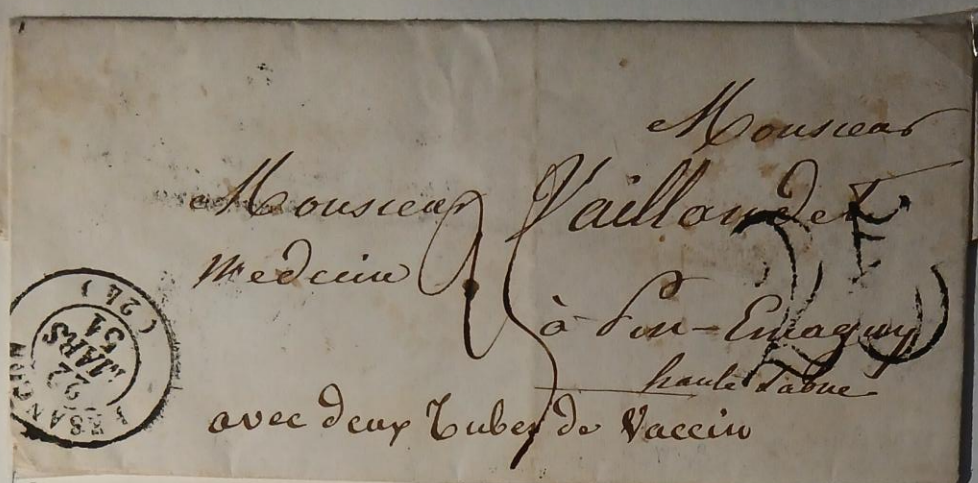 Monsieur
Monsieur Vaillandet
Medecin
à Pin-Emagny
haute Saone
avec deux Tubes de Vaccin
25
BESANCON (24)
22
MARS
51